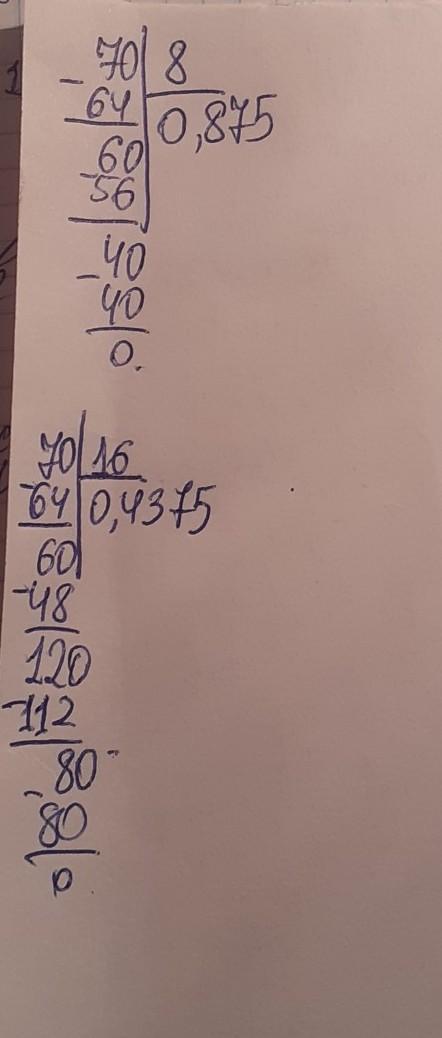 - 70 8
64 0,875
- 60
56
- 40
40
0.
70 16
- 64 0,4375
60
- 48
120
- 112
80
- 80
0